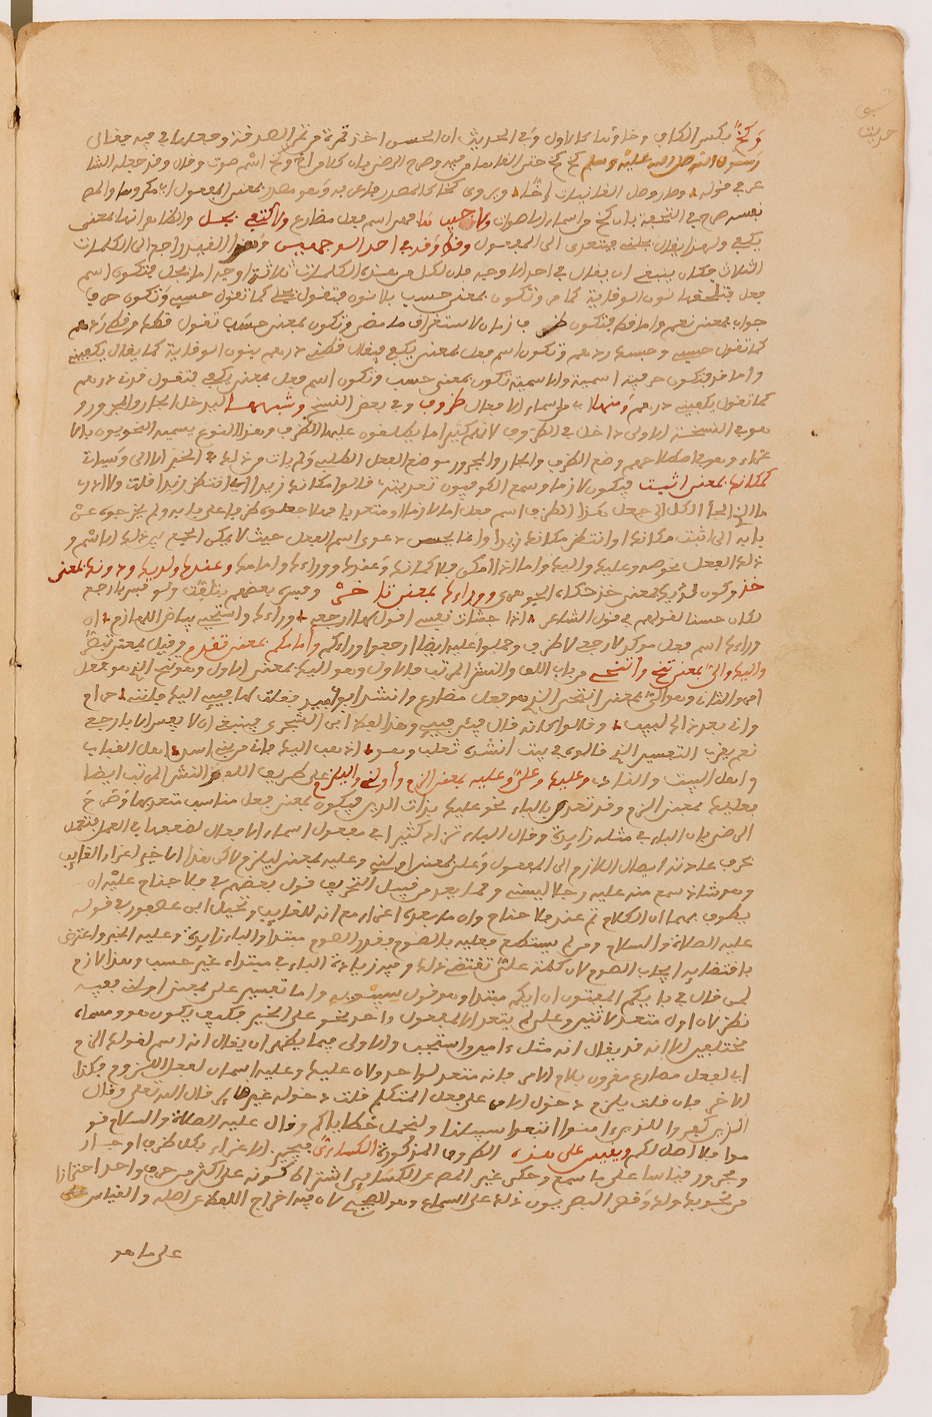 وكخ بكسر الكاف وخاؤها كالاول وفي الحديث ان الحسن اخذ تمرة من تمر الصدقة وجعلها في فيه فقال
رسول الله صلى الله عليه وسلم كخ كخ حتى القاها من فيه وصرح الرضي بان كلا من اخ وكخ اسم صوت وقال وقد جعله الشا
عر في قوله وصار وصل الغانيات اخا ويروى كخا كالمصدر فاعربه وهو مصدر بمعنى المفعول اي مكروها والمص
نفسه صرح في التحفة بان كخ من اسماء الاصوات ولا اكتفي بجل والظاهر انها بمعنى
يكفي ولهذا يقال يتعدى الى المفعول وقط وقد في احد الوجهين وهذا القيد راجع الى الكلمات
الثلاث فكان ينبغي ان يقال في احد الاوجه فان لكل من هذه الكلمات ثلاثة اوجه اما بجل فتكون اسم
فعل فتلحقها نون الوقاية كما مر وتكون بمعنى حسب بلا نون فتقول بجلي كما تقول حسبي وتكون حرف
جواب بمعنى نعم واما قط فتكون ظرف زمان لاستغراق ما مضى وتكون بمعنى حسب تقول قطي وقطك درهم
كما تقول حسبي وحسبك درهم وتكون اسم فعل بمعنى يكفي فيقال قطني درهم بنون الوقاية كما يقال يكفيني
واما قد فتكون حرفية اسمية والاسمية تكون بمعنى حسب وتكون اسم فعل بمعنى يكفي فتقول قدني درهم
كما تقول يكفيني درهم ومنها اي من اسماء الافعال ظروف وفي بعض النسخ وشبهها ليدخل الجار والمجرور و
هو في النسخة الاولى داخل في الظروف لانهم كثيرا ما يطلقون عليه الظرف وهذا النوع يسميه النحويون بالا
غراء وهو في اصطلاحهم وضع الظرف والجار والمجرور موضع الفعل الطلبي ولم يات من ذلك في الخبر الا الي وسيأتي
كمكانك بمعنى اثبت فيكون لازما وسمع الكوفيون تعديته قالوا مكانك زيدا اي انتظر زيدا قلت ولا ادري
ما الذي الجأ الكل الى جعل هذا الظرف اسم فعل اما لازما او متعديا فهلا جعلوه ظرفا على بابه ولم يخرجوه عن
بابه اي اثبت مكانك او انتظر مكانك زيدا وانما يحسن دعوى اسم الفعل حيث لا يمكن الجمع بين ذلك الاسم و
ذلك الفعل نحو صه وعليك واليك واما اذا امكن فلا كمكانك وعندك ووراءك وامامك وعندك ولديك ودونك بمعنى
خذ وكون لديك بمعنى خذ حكاه الجوهري ووراءك بمعنى تاخر وفسره بعضهم ولو فسر بارجع
لكان حسنا لقولهم في قول الشاعر اذا جشأت نفسي اقول لها ارجعي وراءك واستحيي بياض اللهازم ان
وراءك اسم فعل موكد لارجع لا ظرف وحملوا عليه ايضا ارجعوا وراءكم وامامك بمعنى تقدم وقيل بمعنى تبصر
واليك والي بمعنى تنح وانتحي من باب اللف والنشر المرتب فالاول وهو اليك بمعنى الاول وهو تنح الذي هو فعل
امر والثاني وهو الي بمعنى انتحي الذي هو فعل مضارع وانشد ابو فقلت لها فيئي اليك فانني حرام
واني بعد ذاك لبيب وقالوا كانه قال فيئي فيئي وهذا لفظ ابن الشجري فينبغي ان لا يفسر الا بارجعي
نعم يقرب التفسير الذي قالوه في بيت انشده ثعلب وهو اذهب اليك فاني من بني اسد اهل القباب
واهل البيت والنادي وعليك وعلي وعليه بمعنى الزم وأولني وليلزم على طريق اللف والنشر المرتب ايضا
فعليك بمعنى الزم وقد تعدى بالباء نحو عليك بذات الدين فيكون بمعنى فعل مناسب متعد بها وصرح
الرضي بان الباء في مثله زائدة وقال الباء تزاد كثيرا في مفعول اسماء الافعال لضعفها في العمل فتعمل
بحرف عادته ايصال اللازم الى المفعول وعلي بمعنى اولني وعليه بمعنى ليلزم ولا في هذا الاخير اغراء الغائب
وهو شاذ سمع منه عليه رجلا ليسني ومما يعد من قبيل التحريف قول بعضهم في فلا جناح عليه ان
يطوف بهما ان الكلام تم عند فلا جناح وان ما بعده اغراء مع انه للغائب وتخيل ابن عصفور في قوله
عليه الصلاة والسلام ومن لم يستطع فعليه بالصوم فقدر الصوم مبتدا والباء زايدة وعليه الخبر واعترض
باقتضايه ايجاب الصوم لان كلمة على تقتضي ذلك وفيه زيادة الباء في مبتداء غير حسب وهذا لازم
لمن قال في بايكم المفتون ان ايكم مبتدا وهو قول سيبويه واما تفسير علي بمعنى اولني ففيه
نظر لان اول متعد لاثنين وعلي لم يتعد الا لمفعول واحد نحو علي الخبر فكيف يكون هو ومسماه
مختلفين الا انه قد يقال انه مثل امين واستجب والاولى فيما يظهر ان يقال انه اسم لقولك الزم
اي لفعل مضارع مقرون بلام الامر فانه متعد لواحد ولان عليك وعليه اسمان لفعل اللزوم فكذا
الاخر فان قلت يلزم دخول الامر على فعل المتكلم قلت دخوله غير قال الله تعلى وقال
الذين كفروا للذين امنوا اتبعوا سبيلنا ولنحمل خطاياكم وقال عليه الصلاة والسلام قو
موا فلاصل لكم ويقيس على هذه الظروف المذكورة الكسائي فيجيز الاغراء بكل ظرف او جار
ومجرور قياسا على ما سمع وحكى غير المص عن الكسائي اشتراط كونه على اكثر من حرف واحد احترازا
من نحو بك ولك وقصر البصريون ذلك على السماع وهو الصحيح لان فيه اخراج اللفظ عن اصله والقياس
على ما هو